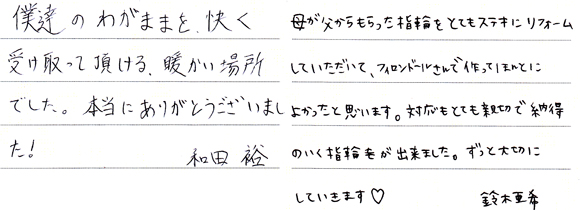 僕達のわがままを、快く
受け取って頂ける、暖かい場所
でした。本当にありがとうございまし
た!
和田 裕
母が父からもらった指輪をとてもステキにリフォーム
していただいて、フィロンドールさんで作ってほんとに
よかったと思います。対応もとても親切で納得
のいく指輪をが出来ました。ずっと大切に
していきます♡
鈴木亜希